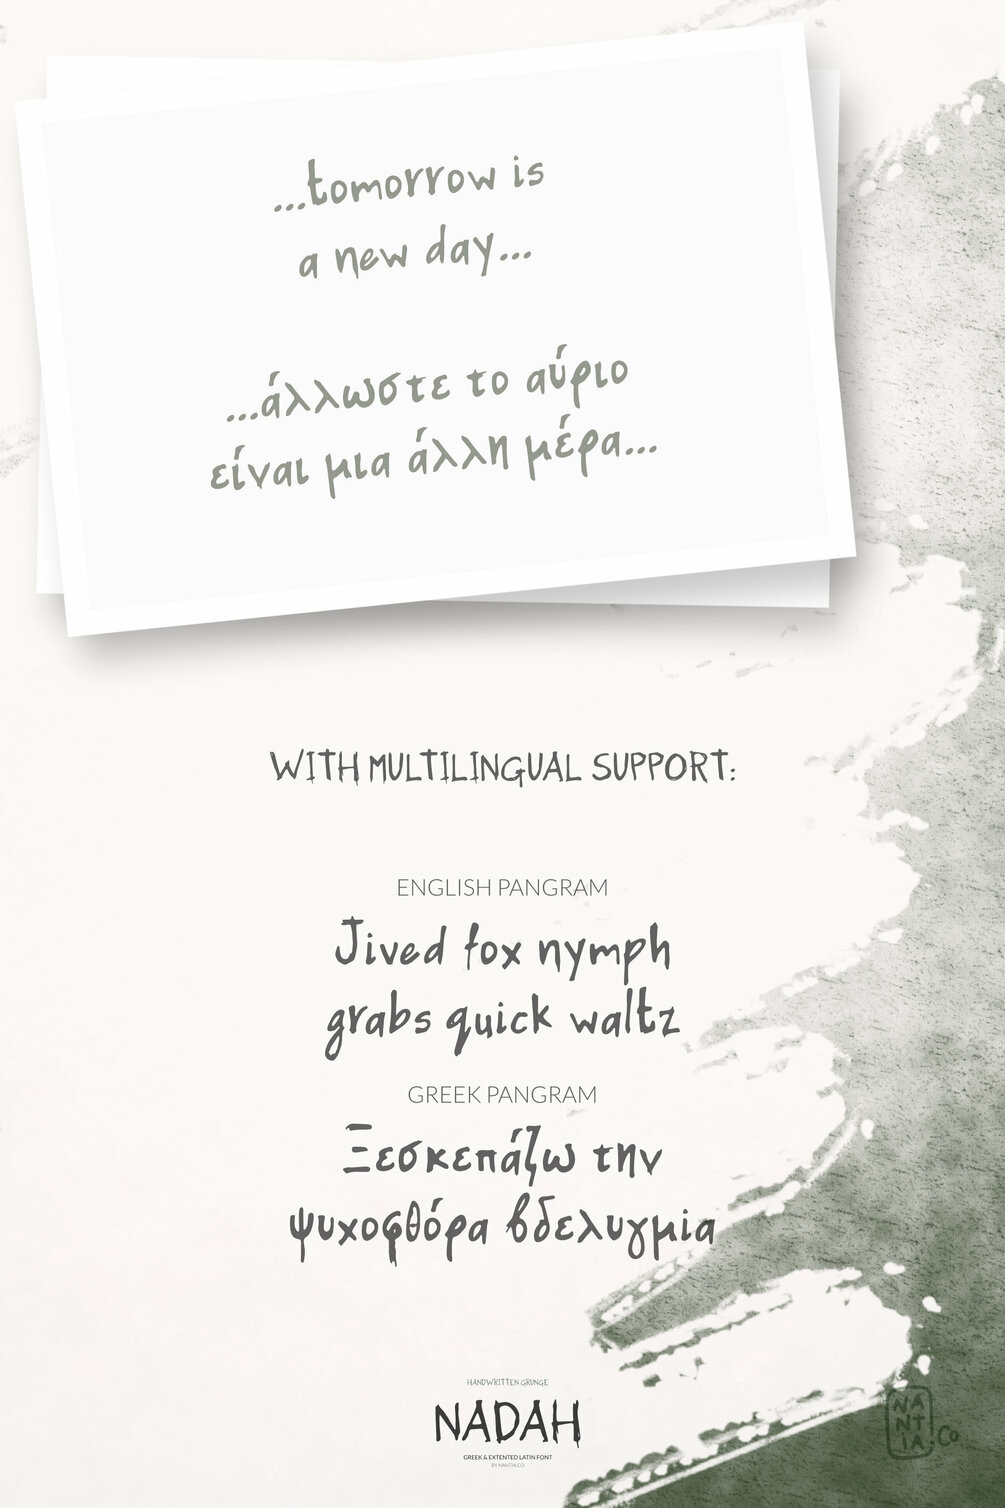 ...tomorrow is
a new day...
...άλλωστε το αύριο
είναι μια άλλη μέρα...
WITH MULTILINGUAL SUPPORT:
ENGLISH PANGRAM
Jived fox nymph
grabs quick waltz
GREEK PANGRAM
Ξεσκεπάζω την
ψυχοφθόρα βδελυγμία
HANDWRITTEN GRUNGE
NADAH
GREEK & EXTENTED LATIN FONT
BY NANTIA.CO
NA
NT
IA Co